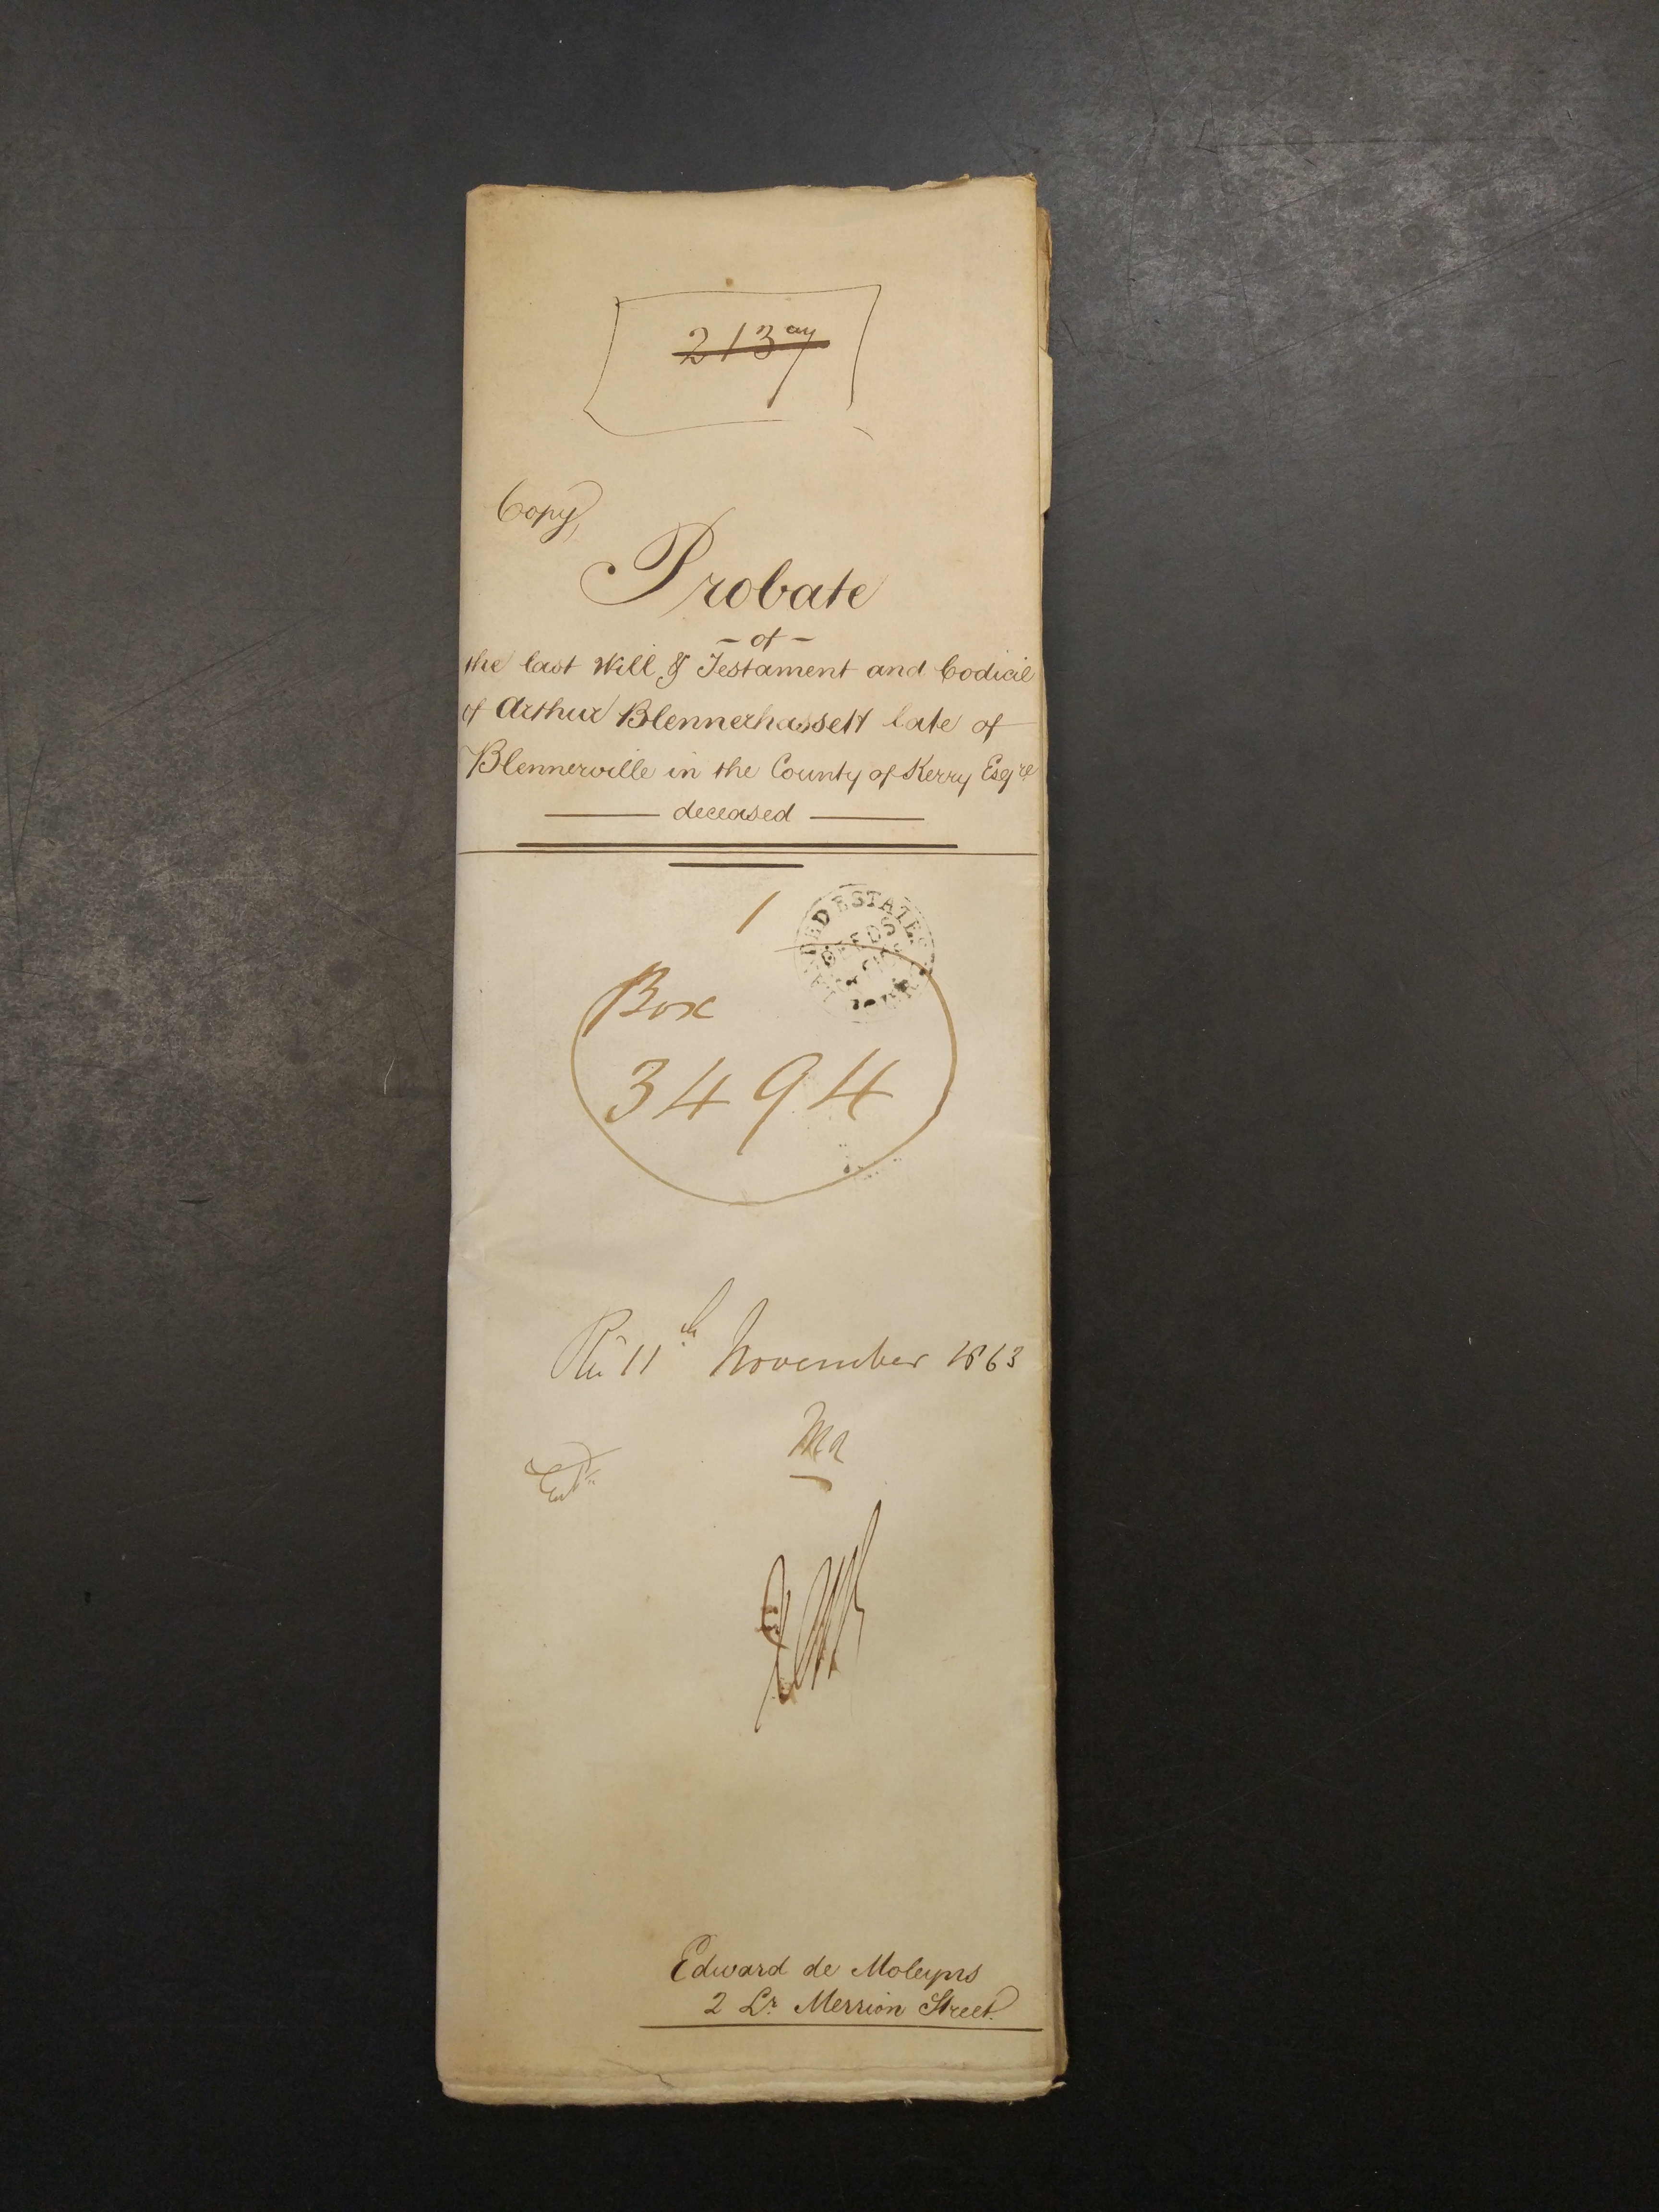 Copy,
Probate
- of -
the last Will & Testament and Codicil
of Arthur Blennerhassett late of
Blennerville in the County of Kerry Esqre
deceased
1
LANDED ESTATES
COURT
Box
3494
11th November 1863
Edward de Moleyns
2 Lr Merrion Street.